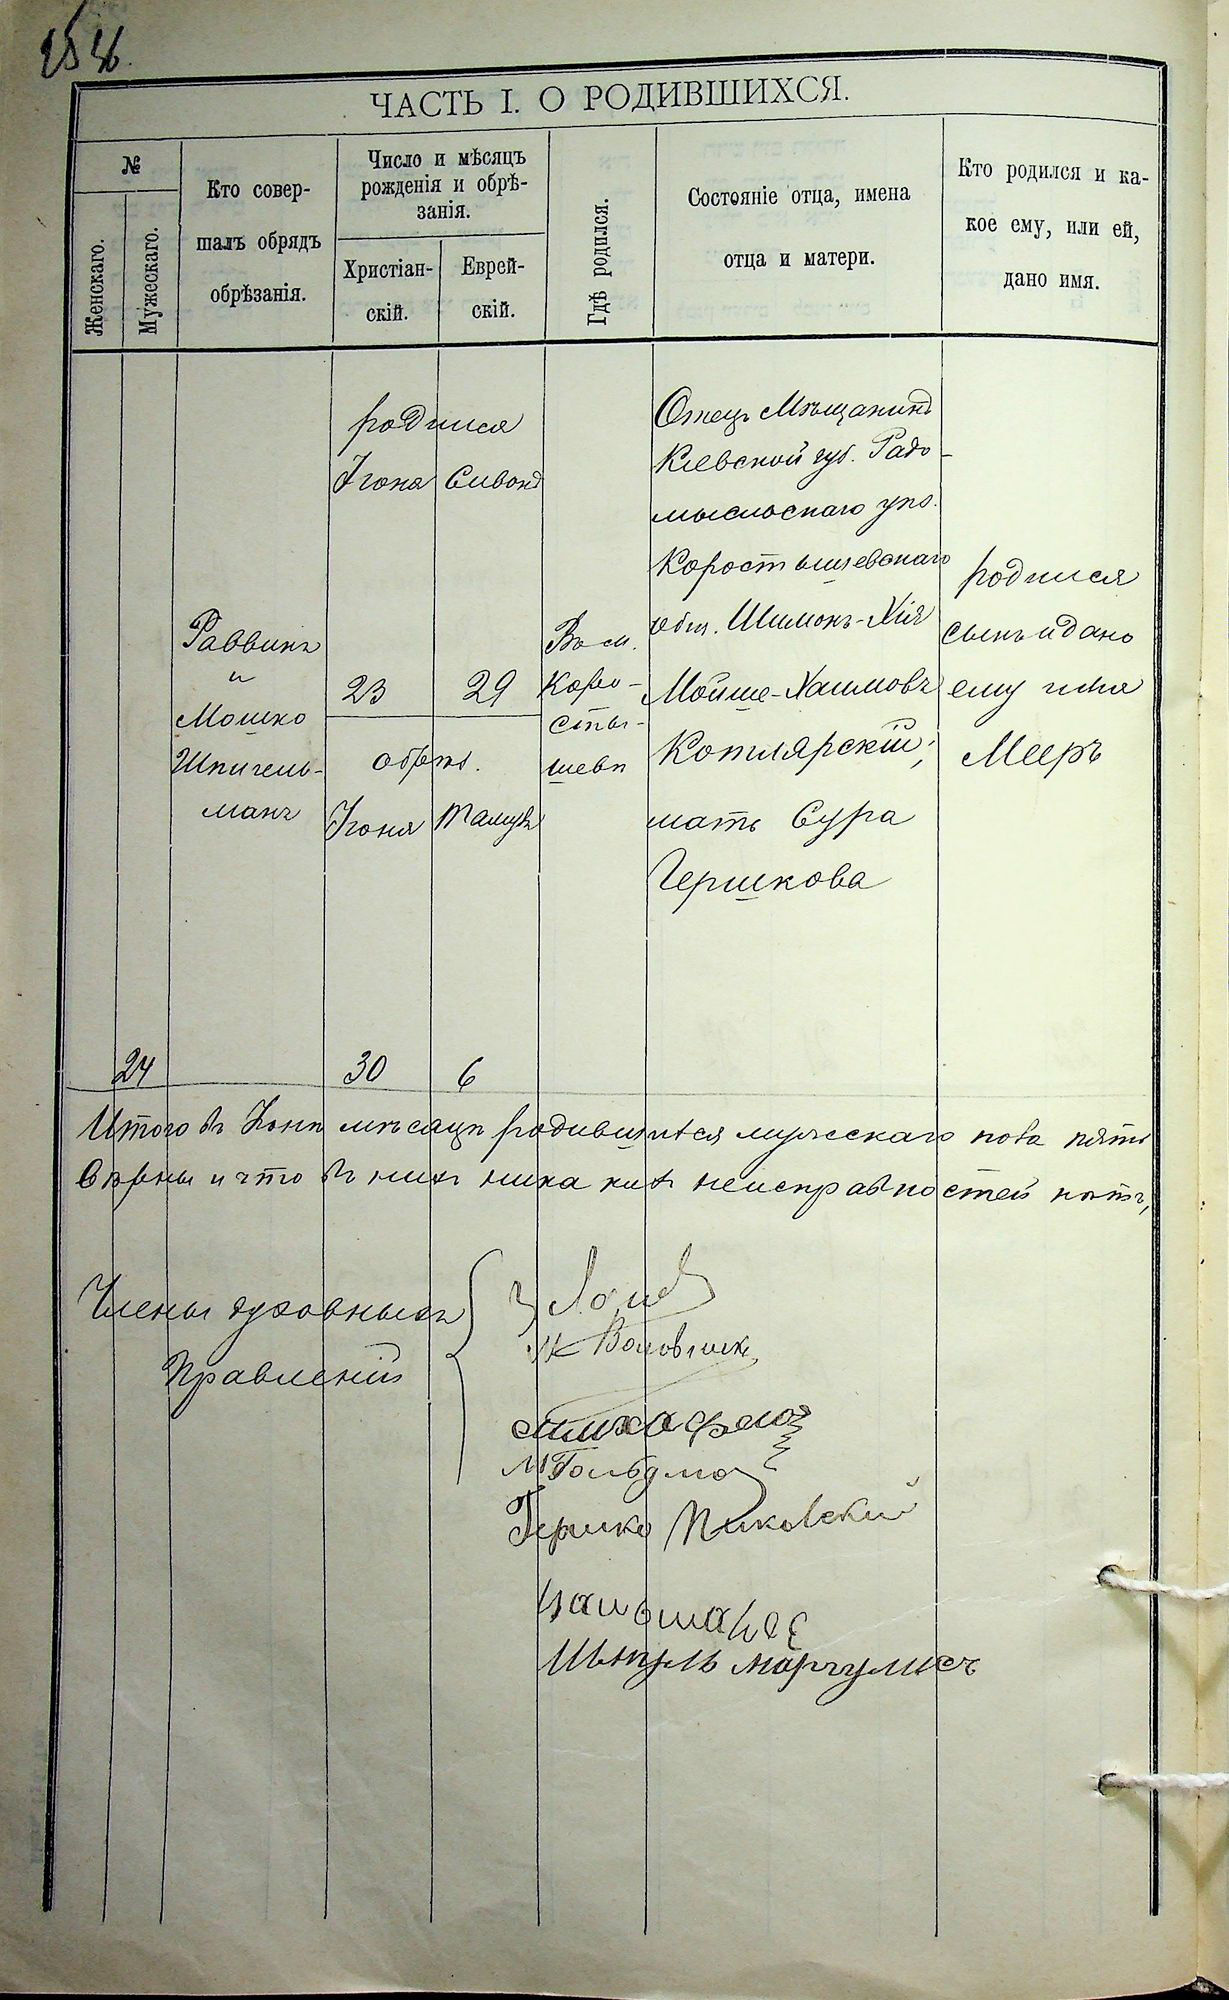 ЧАСТЬ I. О РОДИВШИХСЯ.
№
Женскаго.
Мужескаго.
Кто совер-
шалъ обрядъ
обрѣзанія.
Число и мѣсяцъ
рожденія и обрѣ-
занія.
Христіан-
скій.
Еврей-
скій.
Гдѣ родился.
Состояніе отца, имена
отца и матери.
Кто родился и ка-
кое ему, или ей,
дано имя.
24
Раввинъ
и
Мошко
Шпигель-
манъ
родился
Іюня Сивонъ
23 29
обрѣз.
Іюня Тамузъ
30 6
Въ м.
Коро-
сты-
шевѣ
Отецъ Мѣщанинъ
Кіевской губ. Радо-
мысльскаго уѣз.
Коростышевскаго
общ. Шимонъ-Хія
Мойше-Хаимовъ
Котлярскій;
мать Сура
Гершкова
родился
сынъ и дано
ему имя
Мееръ
Итого въ Іюнѣ мѣсяцѣ родившихся мужескаго пола пять
вѣрны и что въ нихъ никакихъ неисправностей нѣтъ,
Члены духовныхъ
Правленій
Гершко
Маргулисъ